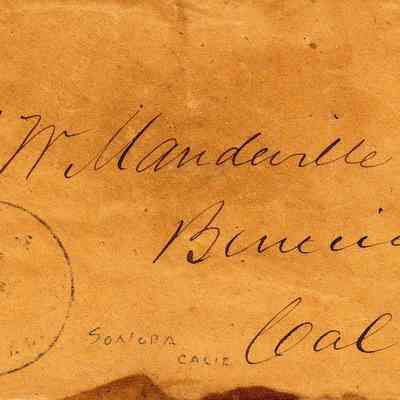 W Mandeville
Benicia
Cal
SONORA
CALIF